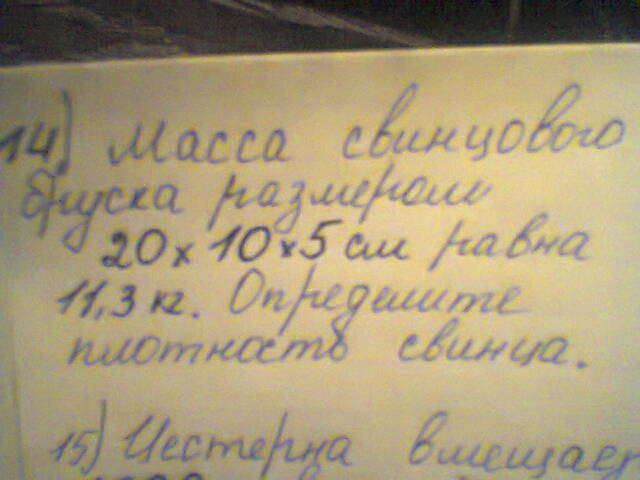 14) Масса свинцового
бруска размером
20 х 10 х 5 см равна
11,3 кг. Определите
плотность свинца.
15) Цестерна вмещает